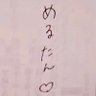 めるたん♡